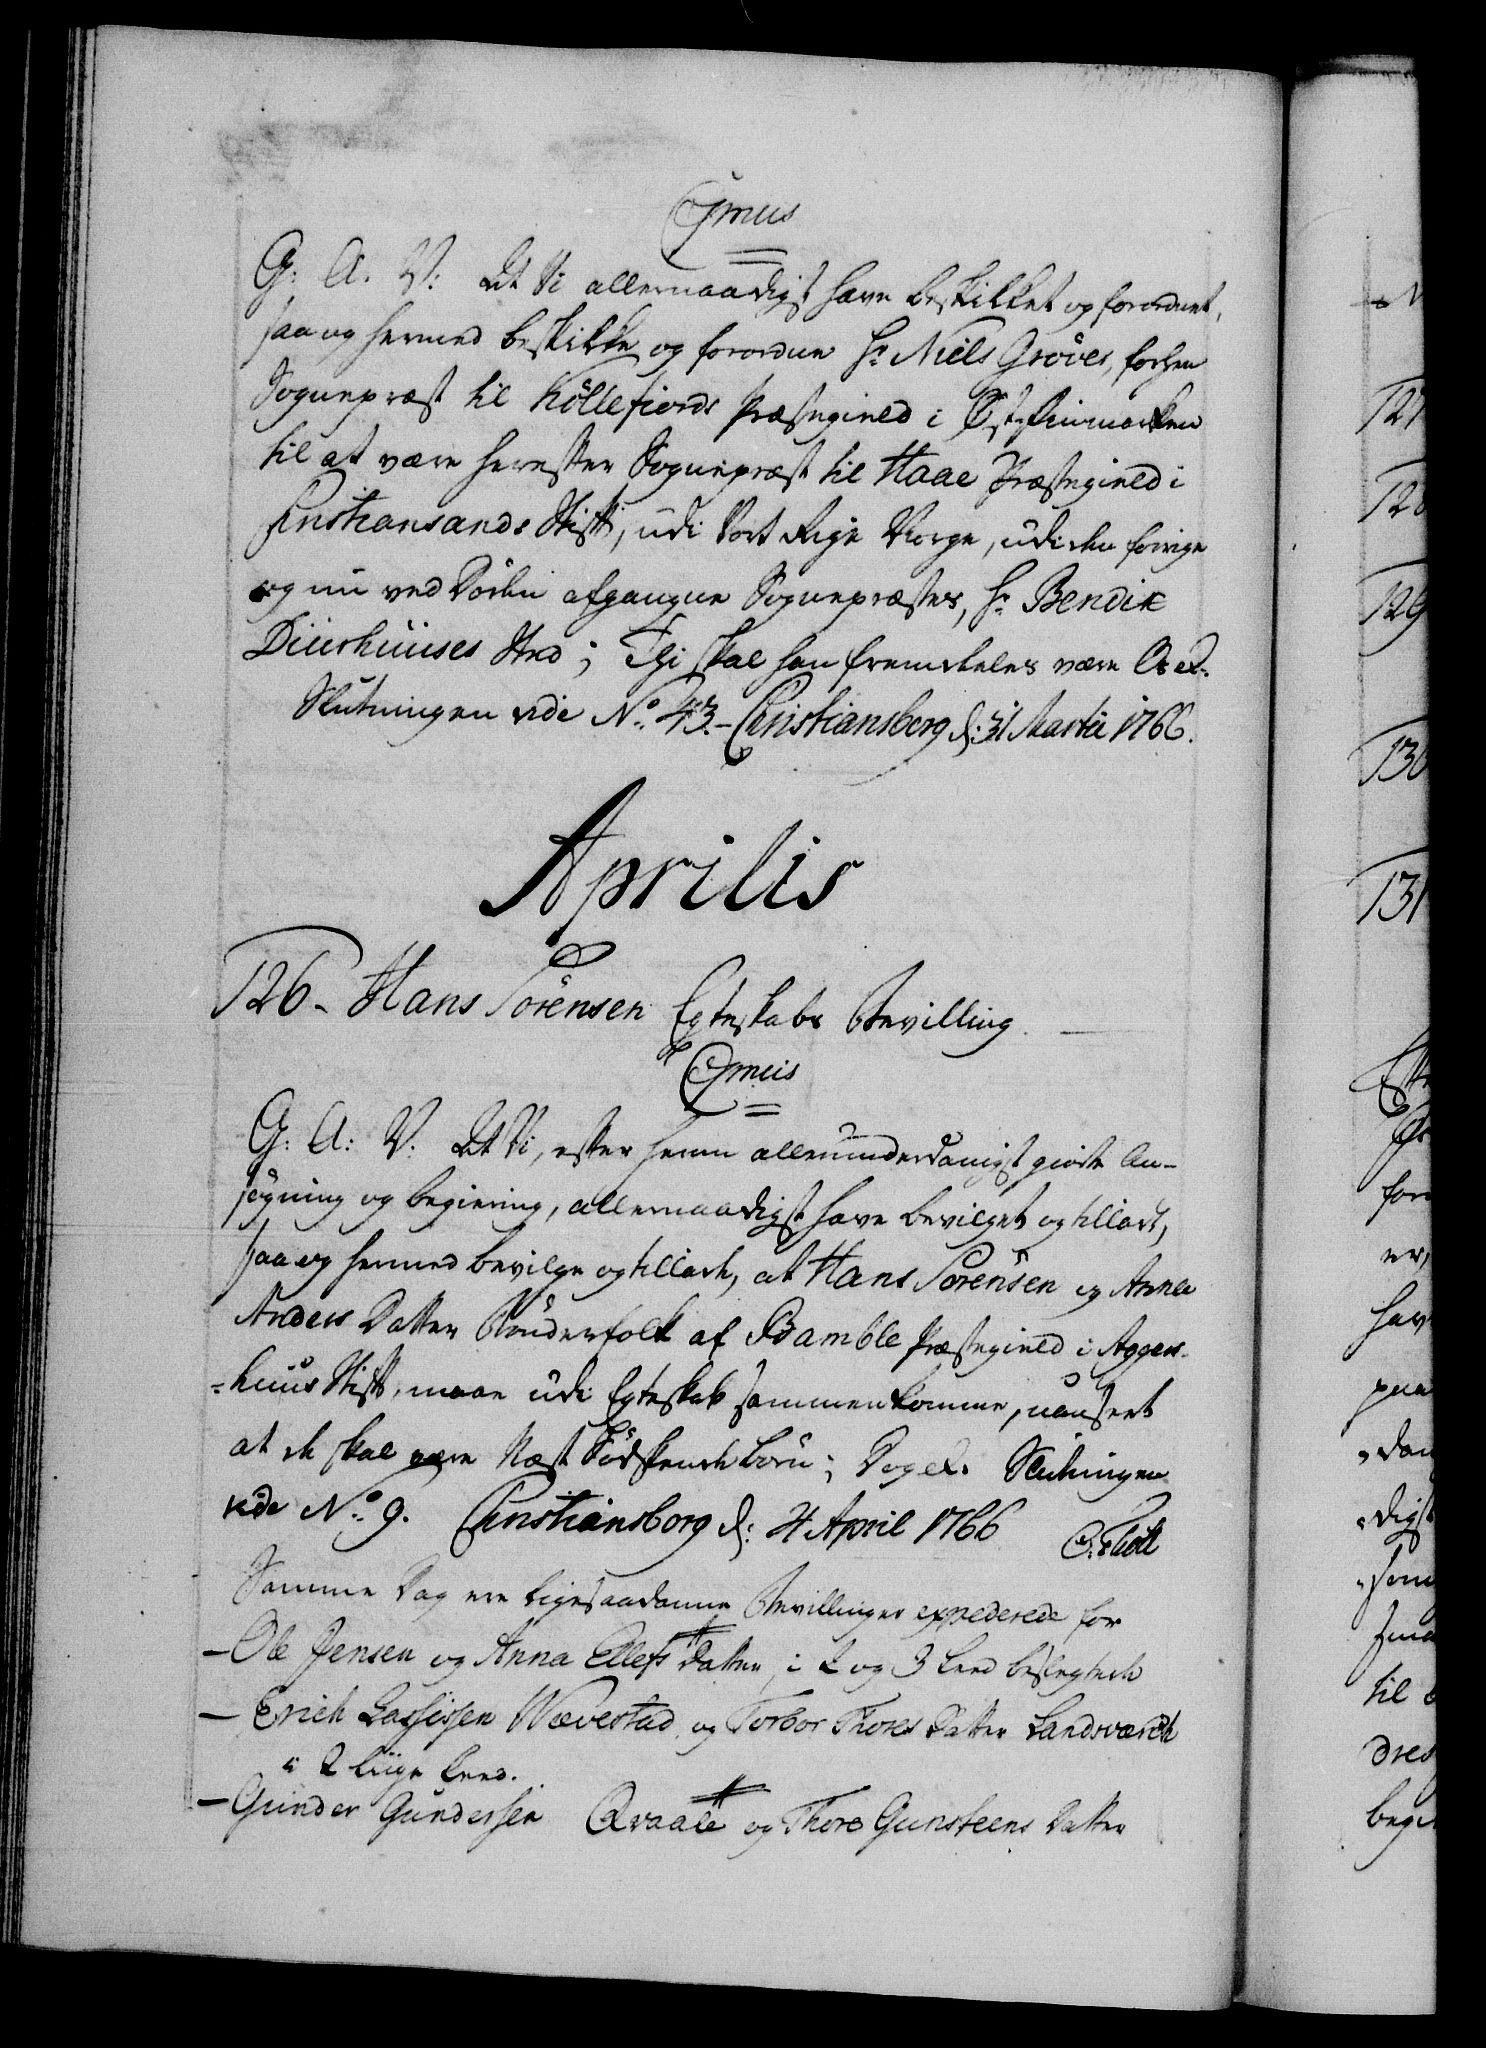 Cs mus
G: A. V: At Vi allernaadigst have beskikket og forordnet,
saa og hermed beskikke og forordne Hr Niels Gröver, forhen
Sognepræst til Köllefiords Præstegield i Østfinmarken
til at være herefter Sognepræst til Haae Præstegield i
Christiansands Stift, udi Vort Rige Norge, udi den forrige
og nu ved Döden afgangne Sognepræstes, Hr Bendix
Diürhuuses Stæd; Thi skal han fremdeles være &c.
Slutningen vide No. 43. Christiansborg d: 31 Martii 1766.
Aprilis
126. Hans Sörensen Egteskabs Bevilling.
Cs mus
G: A: V: At Vi, efter herom allerunderdanigst giorte An-
søgning og begiering, allernaadigst have bevilget og tilladt,
saa og hermed bevilge og tillade, at Hans Sörensen og Anne
Anders Datter Bönderfolk af Bamble Præstegield i Agger-
-huus Stift, maae udi Egteskab sammenkomme, uanseet
at de skal være Næst Södskendebörn; Dog &c. Slutningen
vide No. 9. Christiansborg d: 4 April 1766 O: Thott
Samme Dag ere ligesaadanne Bevillinger expederede for
- Ole Jensen og Anna Ellefs Datter, i 2 og 3 Leed beslegtede
- Erich Lassissen Wævestad og Torbor Thores Datter Landsværck
i 2 liige Leed.
- Gunder Gundersen Qvaale og Thore Gunsteens Datter
127
128
129
130
131